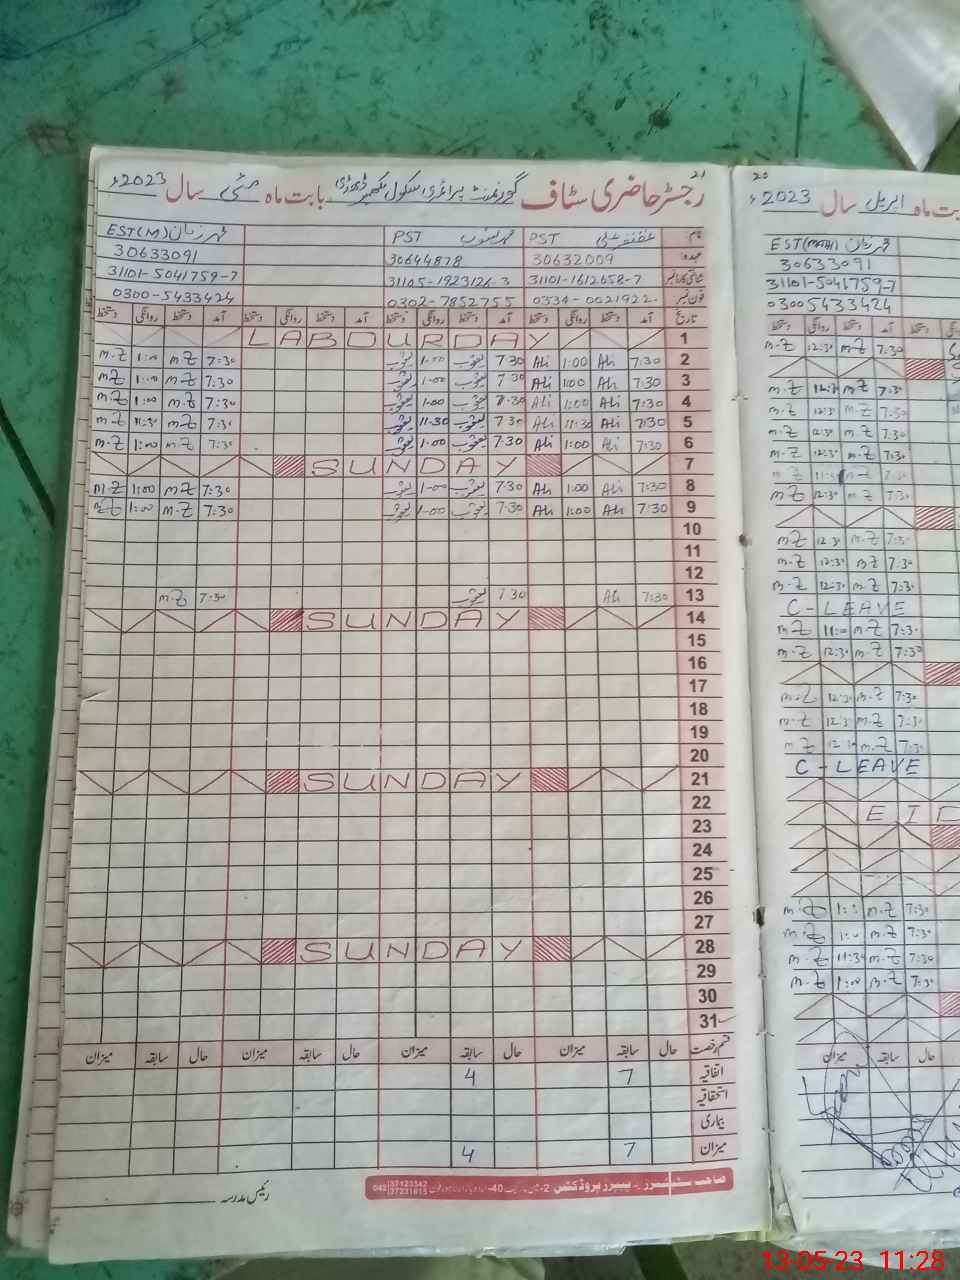 21
رجسٹر حاضری سٹاف گورنمنٹ پرائمری سکول بابت ماہ مئی سال 2023ء
نام غضنفر علی PST محمد یعقوب PST محمد زمان EST(M)
عہدہ 30632009 30644878 30633091
شناختی کارڈ نمبر 31101-1612658-7 31105-1923126-3 31101-5041759-7
فون نمبر 0334-0021922 0302-7852755 0300-5433424
تاریخ آمد دستخط روانگی دستخط آمد دستخط روانگی دستخط آمد دستخط روانگی دستخط آمد دستخط روانگی دستخط
1 LABOUR DAY
2 7:30 Ali 1:00 Ali 7:30 یعقوب 1-00 یعقوب 7:30 M.Z 1:00 M.Z
3 7:30 Ali 1:00 Ali 7:30 یعقوب 1-00 یعقوب 7:30 M.Z 1:00 M.Z
4 7:30 Ali 1:00 Ali 7:30 یعقوب 1:00 یعقوب 7:30 M.Z 1:00 M.Z
5 7:30 Ali 11:30 Ali 7:30 یعقوب 11:30 یعقوب 7:30 M.Z 11:30 M.Z
6 7:30 Ali 1:00 Ali 7:30 یعقوب 1:00 یعقوب 7:30 M.Z 1:00 M.Z
7 SUNDAY
8 7:30 Ali 1:00 Ali 7:30 یعقوب 1-00 یعقوب 7:30 M.Z 1:00 M.Z
9 7:30 Ali 1:00 Ali 7:30 یعقوب 1-00 یعقوب 7:30 M.Z 1:00 M.Z
10
11
12
13 7:30 Ali 7:30 یعقوب 7:30 M.Z
14 SUNDAY
15
16
17
18
19
20
21 SUNDAY
22
23
24
25
26
27
28 SUNDAY
29
30
31
قسم رخصت حال سابقہ میزان حال سابقہ میزان حال سابقہ میزان حال سابقہ میزان
اتفاقیہ 7 4
استحقاقیہ
بیماری
میزان 7 4
رئیس مدرسہ
20
بابت ماہ اپریل سال 2023ء
محمد زمان EST(MATH)
30633091
31101-5041759-7
03005433424
آمد دستخط روانگی دستخط
7:30 M.Z 12:30 M.Z
7:30 M.Z 12:30 M.Z
7:30 M.Z 12:30 M.Z
7:30 M.Z 12:30 M.Z
7:30 M.Z 12:30 M.Z
7:30 M.Z 11:30 M.Z
7:30 M.Z 12:30 M.Z
7:30 M.Z 12:30 M.Z
7:30 M.Z 12:30 M.Z
7:30 M.Z 12:30 M.Z
C-LEAVE
7:30 M.Z 11:00 M.Z
7:30 M.Z 12:30 M.Z
7:30 M.Z 12:30 M.Z
7:30 M.Z 12:30 M.Z
7:30 M.Z 12:30 M.Z
C-LEAVE
EID
7:30 M.Z 1:00 M.Z
7:30 M.Z 1:00 M.Z
7:30 M.Z 11:30 M.Z
7:30 M.Z 1:00 M.Z
حال سابقہ میزان
13-05-23 11:28